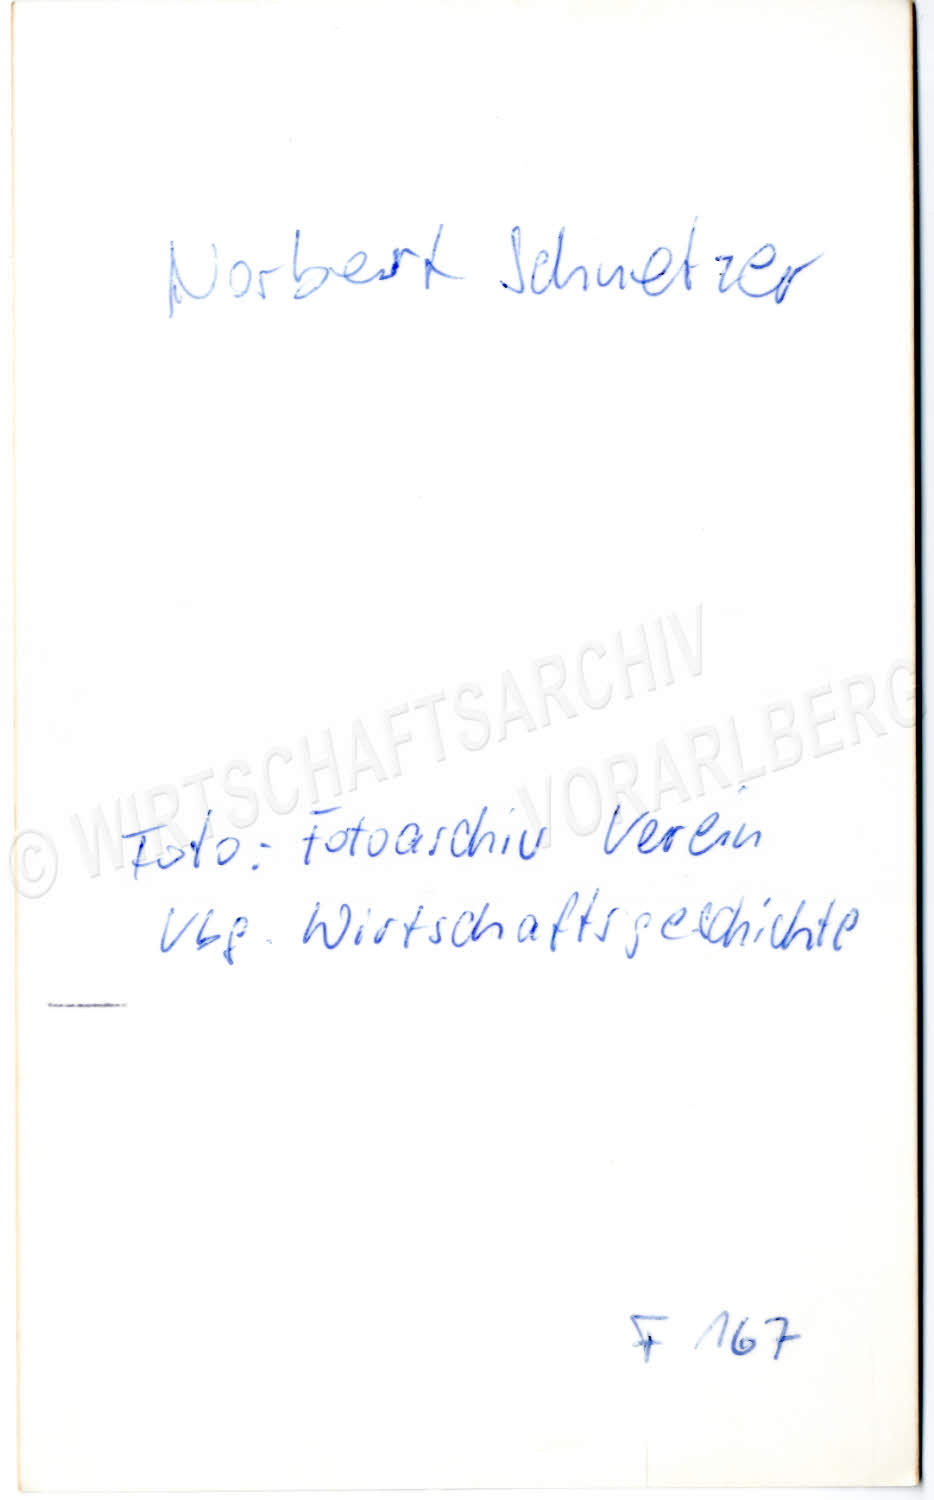 Norbert Schnetzer
© WIRTSCHAFTSARCHIV
VORARLBERG
Foto: Fotoarchiv Verein
Vbg. Wirtschaftsgeschichte
F 167